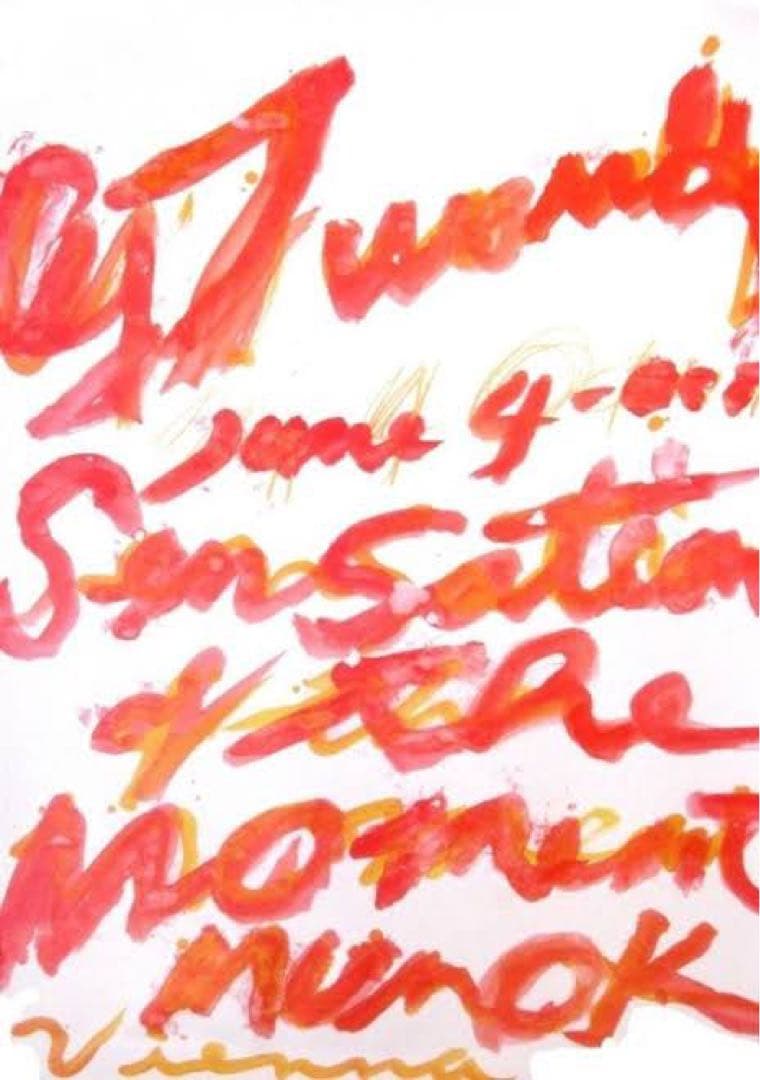 Cy Twombly
June 4-
Sensation
of the
Moment
MUMOK
Vienna